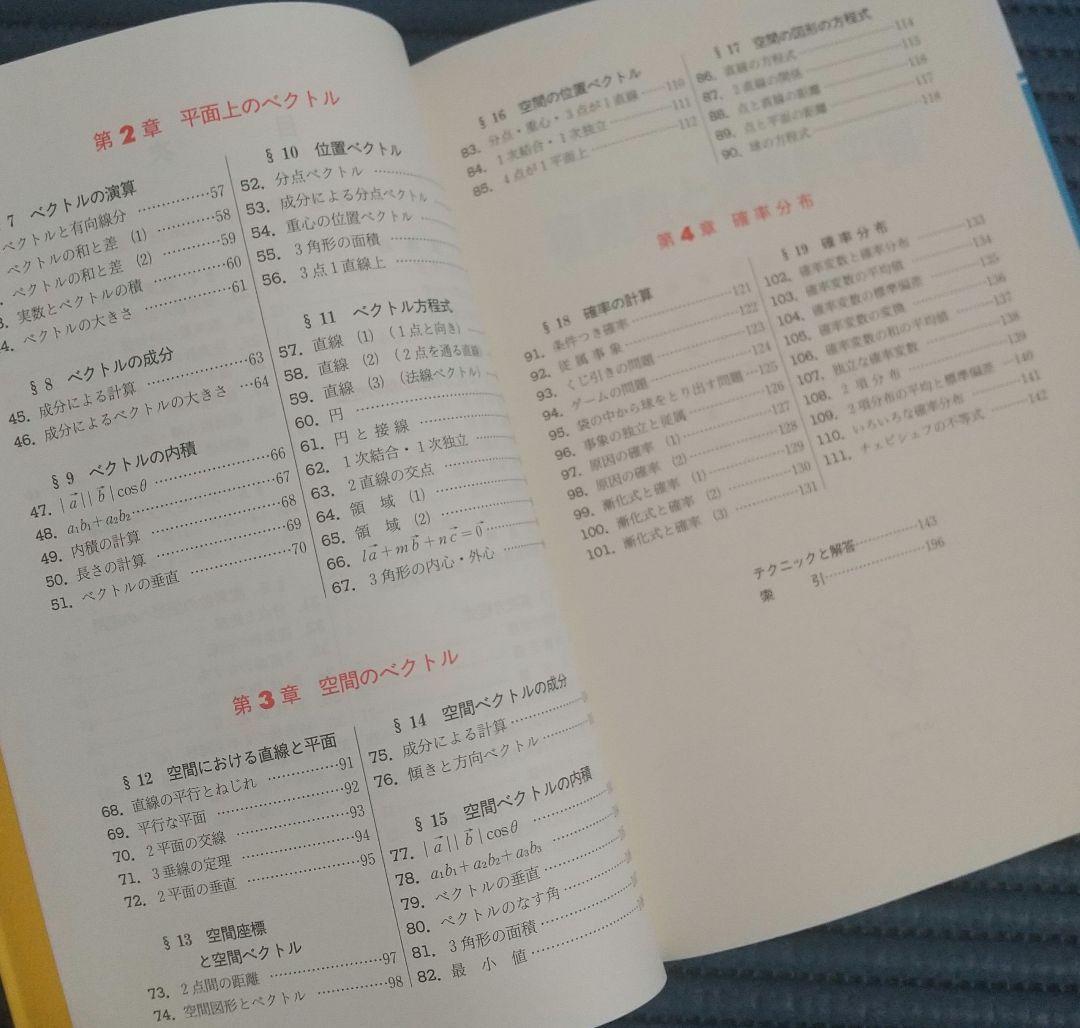 第2章 平面上のベクトル
7 ベクトルの演算
ベクトルと有向線分 ……………57
ベクトルの和と差 (1) …………58
ベクトルの和と差 (2) …………59
3. 実数とベクトルの積 …………60
4. ベクトルの大きさ ……………61
§8 ベクトルの成分
45. 成分による計算 ………………63
46. 成分によるベクトルの大きさ …64
§9 ベクトルの内積
47. |a⃗||b⃗|cosθ ………………66
48. a₁b₁+a₂b₂ ………………67
49. 内積の計算 ………………68
50. 長さの計算 ………………69
51. ベクトルの垂直 ………………70
§10 位置ベクトル
52. 分点ベクトル ………………
53. 成分による分点ベクトル ……
54. 重心の位置ベクトル …………
55. 3角形の面積 ………………
56. 3点1直線上 ………………
§11 ベクトル方程式
57. 直線 (1) (1点と向き) ……
58. 直線 (2) (2点を通る直線)
59. 直線 (3) (法線ベクトル) …
60. 円 ………………
61. 円と接線 ………………
62. 1次結合・1次独立 …………
63. 2直線の交点 ………………
64. 領域 (1) ………………
65. 領域 (2) ………………
66. la⃗+mb⃗+nc⃗=0⃗ …………
67. 3角形の内心・外心 …………
第3章 空間のベクトル
§12 空間における直線と平面
68. 直線の平行とねじれ …………91
69. 平行な平面 ………………92
70. 2平面の交線 ………………93
71. 3垂線の定理 ………………94
72. 2平面の垂直 ………………95
§13 空間座標
と空間ベクトル
73. 2点間の距離 ………………97
74. 空間図形とベクトル …………98
§14 空間ベクトルの成分
75. 成分による計算 ……………
76. 傾きと方向ベクトル …………
§15 空間ベクトルの内積
77. |a⃗||b⃗|cosθ ……………
78. a₁b₁+a₂b₂+a₃b₃ …………
79. ベクトルの垂直 ……………
80. ベクトルのなす角 ……………
81. 3角形の面積 ……………
82. 最小値 ……………
§16 空間の位置ベクトル
83. 分点・重心・3点が1直線 ……110
84. 1次結合・1次独立 …………111
85. 4点が1平面上 ……………112
§17 空間の図形の方程式
86. 直線の方程式 ……………114
87. 2直線の関係 ……………115
88. 点と直線の距離 ……………116
89. 点と平面の距離 ……………117
90. 球の方程式 ……………118
第4章 確率分布
§18 確率の計算
91. 条件つき確率 ……………121
92. 従属事象 ……………122
93. くじ引きの問題 ……………123
94. ゲームの問題 ……………124
95. 袋の中から球をとり出す問題 …125
96. 事象の独立と従属 ……………126
97. 原因の確率 (1) ……………127
98. 原因の確率 (2) ……………128
99. 漸化式と確率 (1) ……………129
100. 漸化式と確率 (2) ……………130
101. 漸化式と確率 (3) ……………131
§19 確率分布
102. 確率変数と確率分布 …………133
103. 確率変数の平均値 ……………134
104. 確率変数の標準偏差 …………135
105. 確率変数の変換 ……………136
106. 確率変数の和の平均値 ………137
107. 独立な確率変数 ……………138
108. 2項分布 ……………139
109. 2項分布の平均と標準偏差 ……140
110. いろいろな確率分布 …………141
111. チェビシェフの不等式 ………142
テクニックと解答 ……………143
索引 ……………196